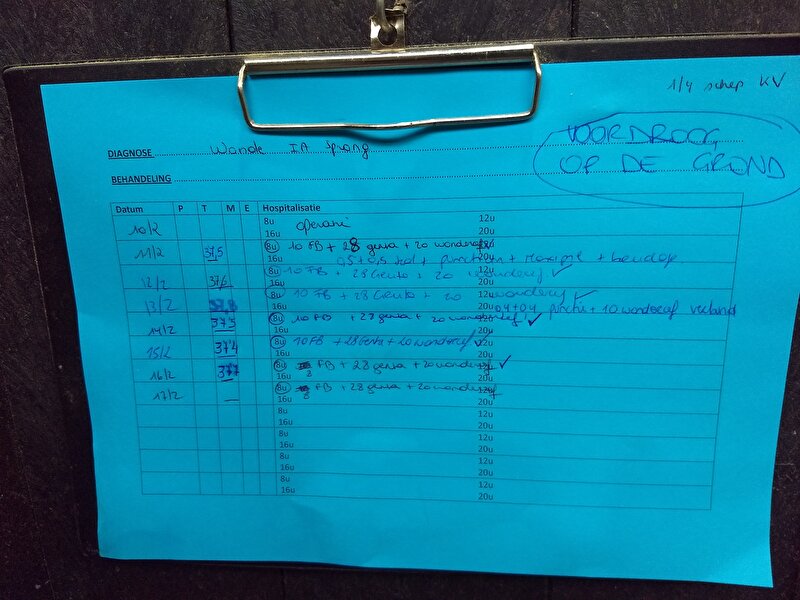 1/4 schep KV
VOORDROOG
OP DE GROND
DIAGNOSE Wonde IA sprong
BEHANDELING
Datum P T M E Hospitalisatie
10/2 8u operatie 12u
16u 20u
11/2 37,5 8u 10 FB + 28 genta + 20 wonderaf 12u
16u 0,5 + 0,5 + + + 20u
12/2 37,6 8u 10 FB + 28 Genta + 20 wonderaf ✓ 12u
16u 20u
13/2 8u 10 FB + 28 Genta + 20 wonderaf ✓ 12u
16u 0,4 + 0,4 + 10 wonderaf verband 20u
14/2 37,3 8u 10 FB + 28 genta + 20 wonderaf ✓ 12u
16u 20u
15/2 37,4 8u 10 FB + 28 Genta + 20 wonderaf ✓ 12u
16u 20u
16/2 37,7 8u 8 FB + 28 genta + 20 wonderaf ✓ 12u
16u 20u
17/2 8u 8 FB + 28 genta + 20 wonderaf 12u
16u 20u
8u 12u
16u 20u
8u 12u
16u 20u
8u 12u
16u 20u
8u 12u
16u 20u